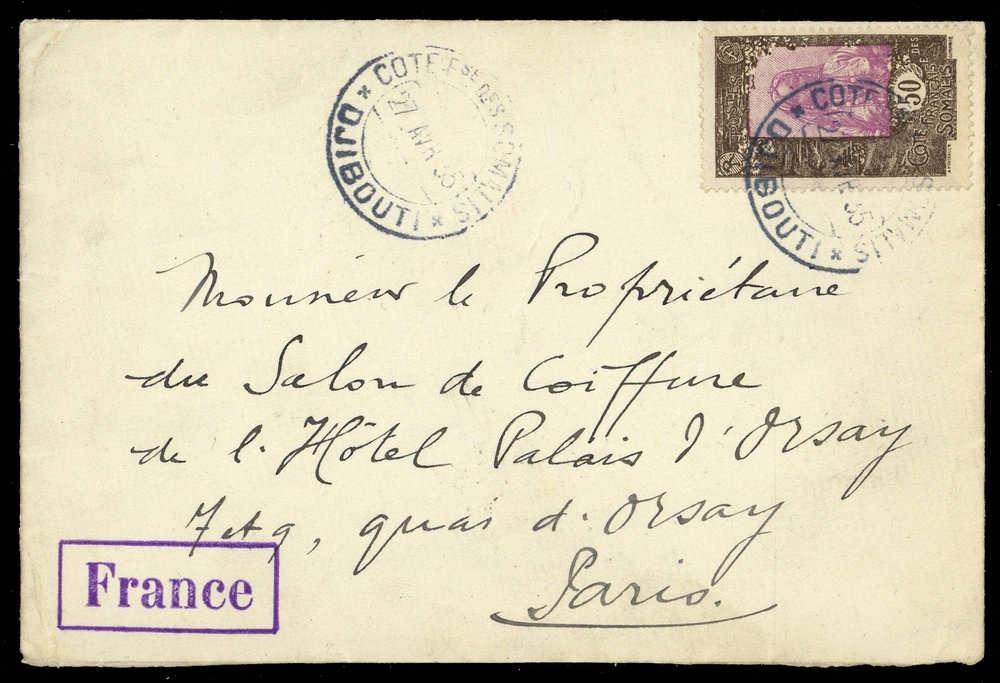 COTE Fse DES SOMALIS
* DJIBOUTI *
27 AVR 35
50
COTE FRANÇAISE DES SOMALIS
COTE
SOMALIS
* DJIBOUTI *
35
Monsieur le Propriétaire
du Salon de Coiffure
de l'Hôtel Palais d'Orsay
7 et 9, quai d'Orsay
Paris.
France